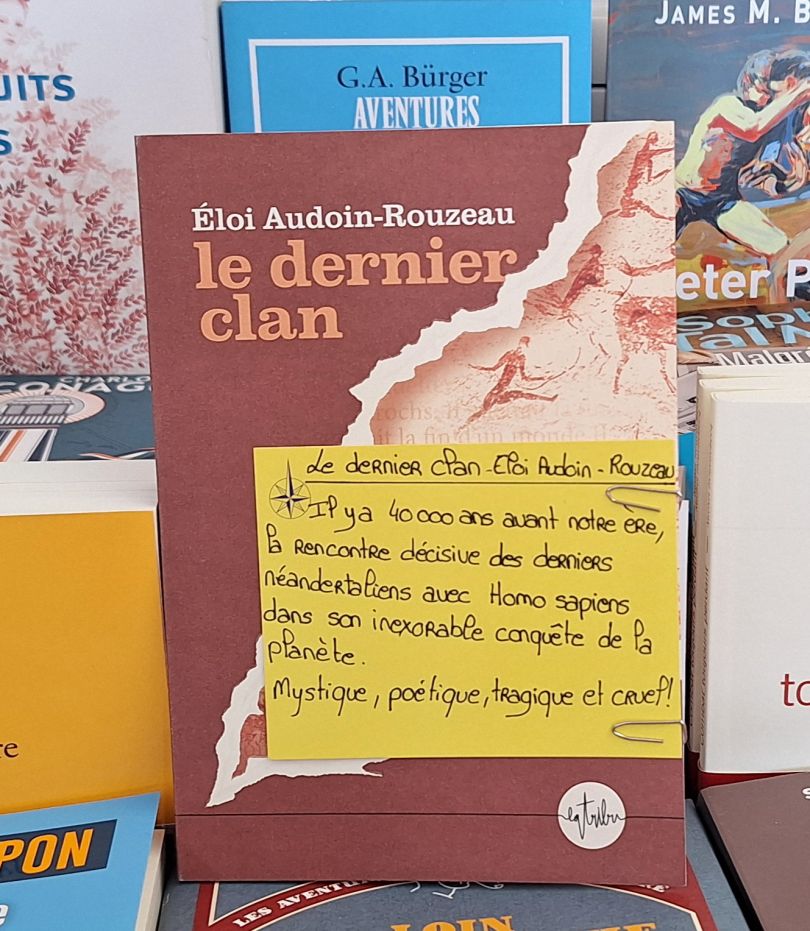 UITS
S
G.A. Bürger
AVENTURES
JAMES M. B
eter P
Éloi Audoin-Rouzeau
le dernier
clan
la fin d'un monde
Le dernier clan - Eloi Audoin - Rouzeau
Il y a 40 000 ans avant notre ère,
la rencontre décisive des derniers
néandertaliens avec Homo sapiens
dans son inexorable conquête de la
planète.
Mystique, poétique, tragique et cruel!
eqtribu
re
PON
e
to
LES AVENTU
LOIN